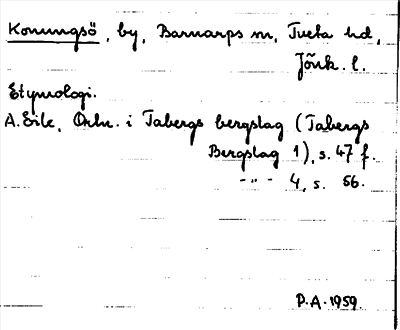 Konungsö, by, Barnarps sn, Tveta hd,
Jönk. l.
Etymologi.
A. Eile, Ortn. i Tabergs bergslag (Tabergs
Bergslag 1), s. 47 f.
-"- 4, s. 56.
P.A. 1959.